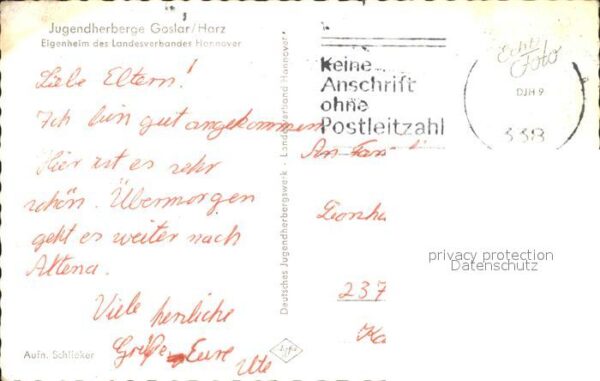 Jugendherberge Goslar/Harz
Eigenheim des Landesverbandes Hannover
Liebe Eltern!
Ich bin gut angekommen
Hier ist es sehr
schön. Übermorgen
geht es weiter nach
Altena.
Viele herzliche
Grüße Eure
Ute
Aufn. Schlieker
Deutsches Jugendherbergswerk - Landesverband Hannover
Agfa
Keine
Anschrift
ohne
Postleitzahl
Echt
Foto
DJH 9
338
An Fam
237
privacy protection
Datenschutz